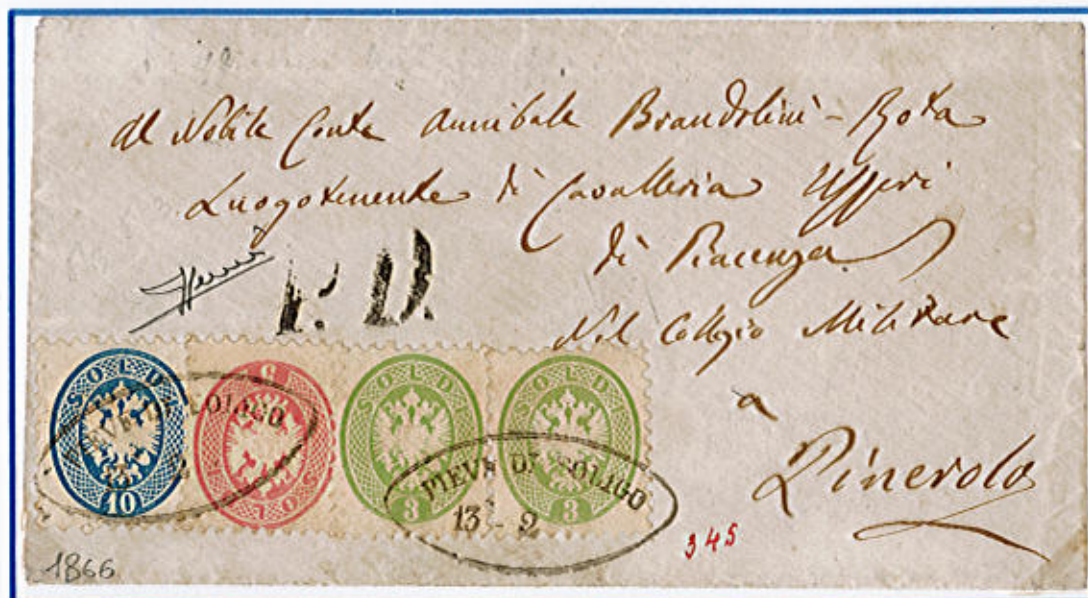 Al Nobile Conte Annibale Brandolini-Rota
Luogotenente di Cavalleria Ussari
di Piacenza
Nel Collegio Militare
a
Pinerolo
P. D.
SOLDI 10
SOLDI 5
SOLDI 3
SOLDI 3
PIEVE DI SOLIGO
PIEVE DI SOLIGO
13 - 2
345
1866